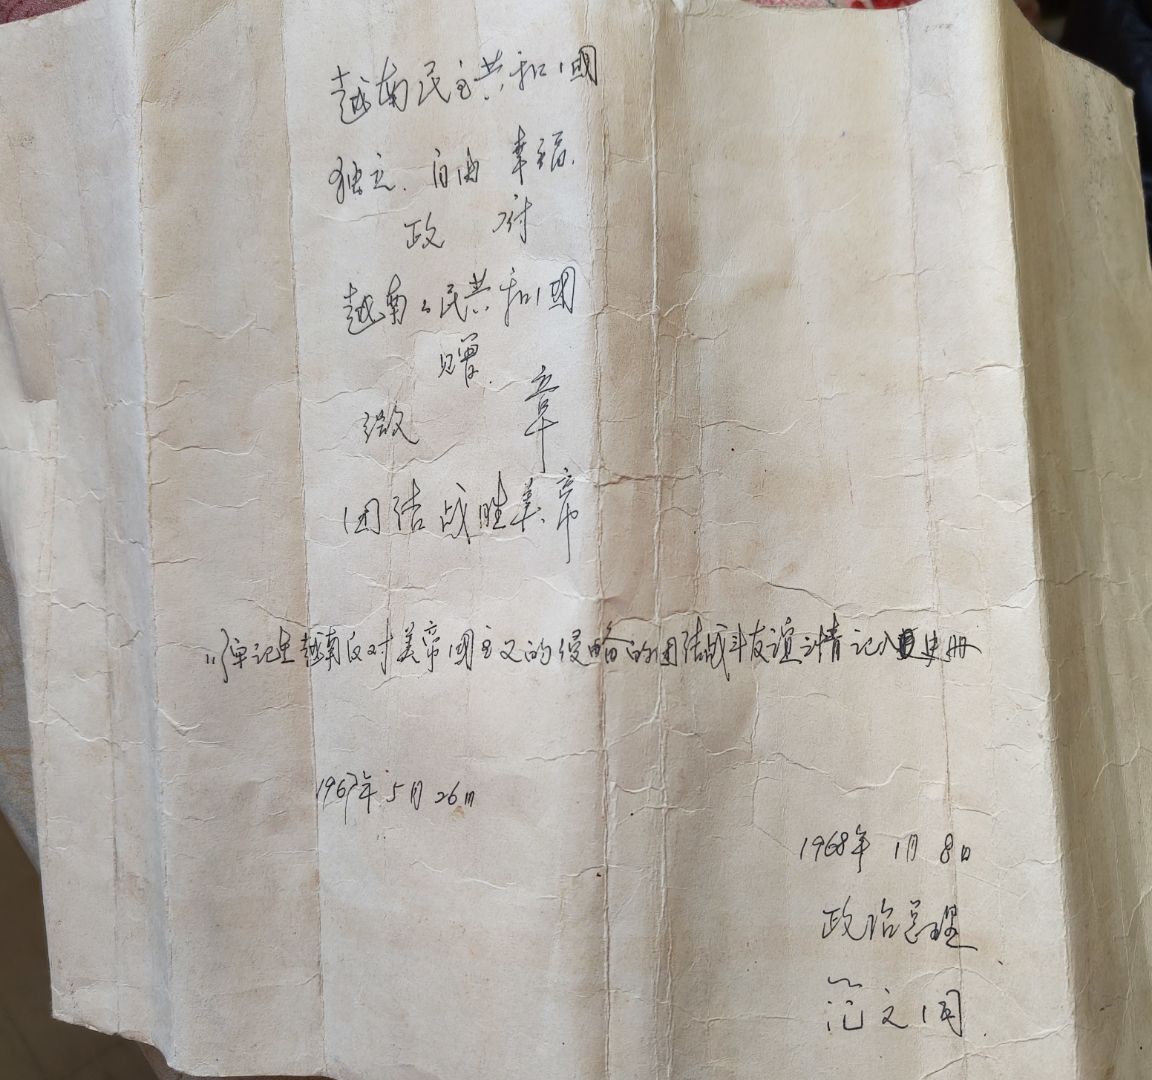 越南民主共和国
独立.自由 幸福.
政 府
越南人民共和国
赠.
徽 章
团结战胜美帝
"牢记在越南反对美帝国主义的侵略的团结战斗友谊之情记入史册
1967年5月26日
1968年 1月 8日
政治总理
范文同.